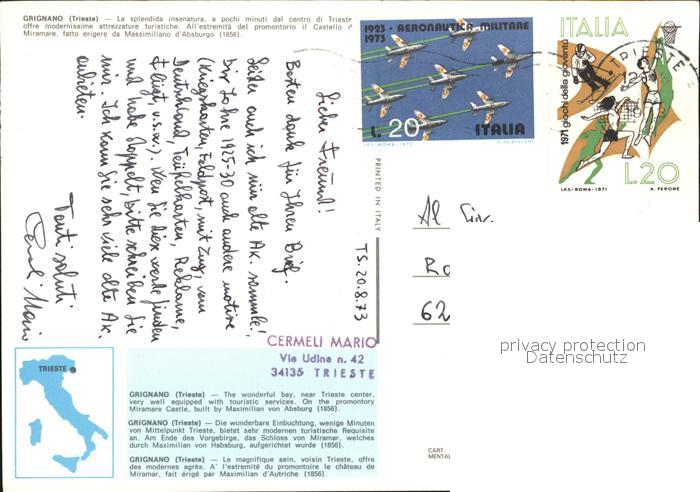 GRIGNANO (Trieste) — La splendida insenatura, a pochi minuti dal centro di Trieste
offre modernissime attrezzature turistiche. All'estremità del promontorio il Castello
Miramare, fatto erigere da Massimiliano d'Absburgo (1856).
1923 - AERONAUTICA MILITARE
1973
L. 20
ITALIA
I.P.S. - ROMA - 1973
ITALIA
1971 giochi della gioventù
TRIESTE
L.20
I.P.S. - ROMA - 1971
A. PERONE
PRINTED IN ITALY
TS. 20.8.73
Lieber Freund!
Besten dank für Ihren Brief.
Leider auch ich nur alte AK. sammle!
Die Jahre 1925-30 auch andere motive
(Kriegskarten, Feldpost mit Zug, vom
Deutschland, Teüfelkarten, Reklame,
Fliegt, u.s.w.). Wen Sie diese werde finden
und habe doppelt, bitte schreiben Sie
mir. Ich kann Sie sehr viele alte AK.
anbieten.
Tanti saluti
Mario
Al Sir.
62
CERMELI MARIO
Via Udine n. 42
34135 TRIESTE
privacy protection
Datenschutz
TRIESTE
GRIGNANO (Trieste) — The wonderful bay, near Trieste center,
very well equipped with touristic services. On the promontory
Miramare Castle, built by Maximilian von Absburg (1856).
GRIGNANO (Trieste) — Die wunderbare Einbuchtung, wenige Minuten
von Mittelpunkt Trieste, bietet sehr modernen turistische Requisite
an. Am Ende des Vorgebirge, das Schloss von Miramar, welches
durch Maximilian von Habsburg, aufgerichtet wurde (1856).
GRIGNANO (Trieste) — Le magnifique sein, voisin Trieste, offre
des modernes agrès. A' l'estremité du promontoire le château de
Miramar, fait érigé par Maximilian d'Autriche (1856).
CART.
MENTAL